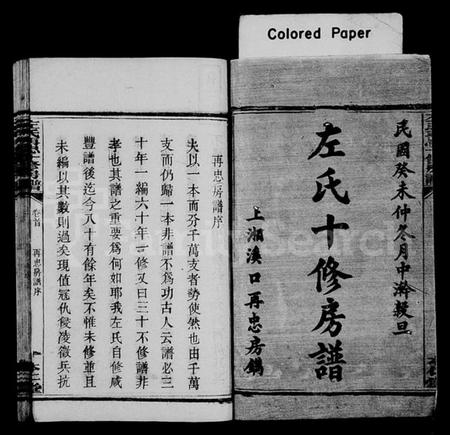 Colored Paper
民國癸未仲冬月中澣穀旦
左氏十修房譜
上湘溪口再忠房鐫
再忠房譜序
夫以一本而芬千萬支者勢使然也由千萬
支而仍歸一本非譜不爲功古人云譜必三
十年一編六十年一修又曰三十不修譜非
孝也其譜之重要爲何如耶我左氏自修咸
豐譜後迄今八十有餘年矣不惟未修並且
未編以其數則過矣現值冠仇侵凌徵兵抗
卷首
再忠房譜序